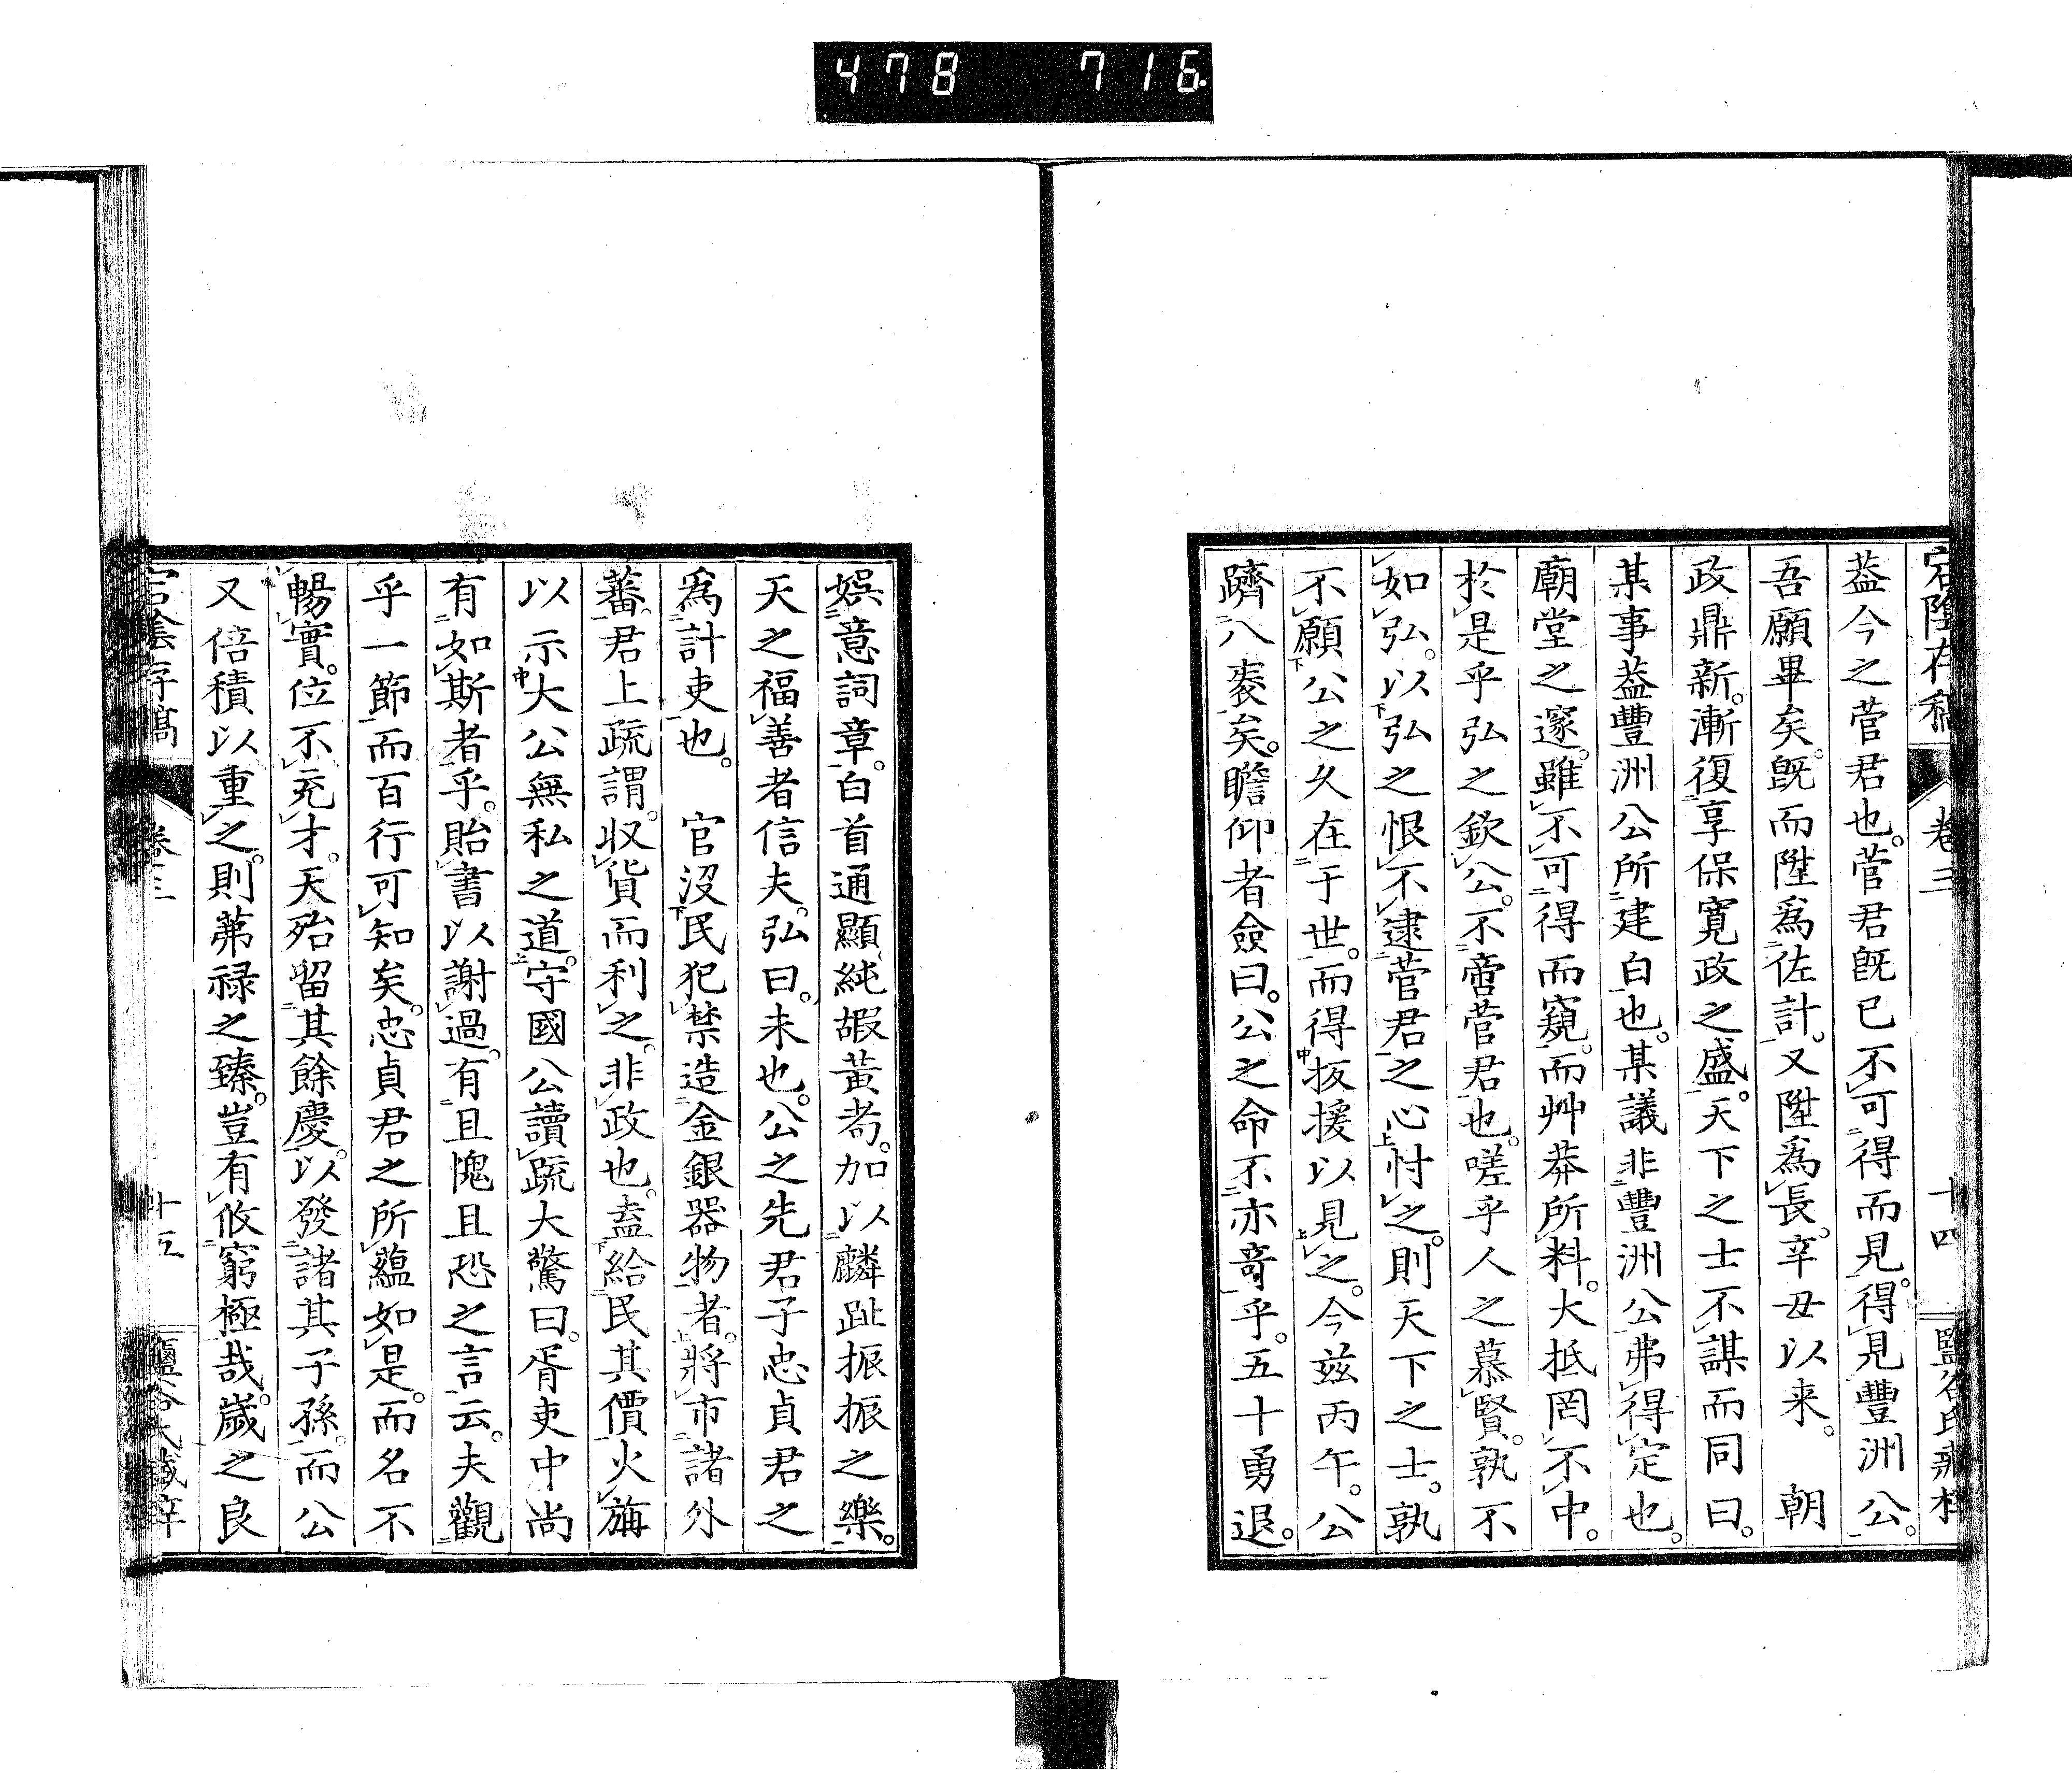 478 716
宕陰存稿 卷三 十四
葢今之菅君也。菅君既已不可得而見。得見豐洲公。
吾願畢矣。既而陞爲佐計。又陞爲長。辛丑以来。 朝
政鼎新。漸復享保寛政之盛。天下之士不謀而同曰。
某事葢豐洲公所建白也。某議非豐洲公弗得定也。
廟堂之邃。雖不可得而窺。而艸莽所料。大抵罔不中。
於是乎弘之欽公。不啻菅君也。嗟乎人之慕賢。孰不
如弘。以弘之恨不逮菅君之心忖之。則天下之士。孰
不願公之久在于世。而得扳援以見之。今兹丙午。公
躋八袠矣。瞻仰者僉曰。公之命不亦竒乎。五十勇退。
娯意詞章。白首通顯、純嘏黃耇。加以麟趾振振之樂。
天之福善者信夫。弘曰。未也。公之先君子忠貞君之
爲計吏也。 官沒民犯禁造金銀器物者。將市諸外
蕃。君上疏謂。収貨而利之。非政也。盍給民其價火旃
以示大公無私之道。守國公讀疏大驚曰。胥吏中尚
有如斯者乎。貽書以謝過。有且愧且恐之言云。夫觀
乎一節而百行可知矣。忠貞君之所蘊如是。而名不
暢實。位不充才。天殆留其餘慶。以發諸其子孫。而公
又倍積以重之。則茀禄之臻。豈有攸窮極哉。歲之良
宕陰存稿 卷三 十五